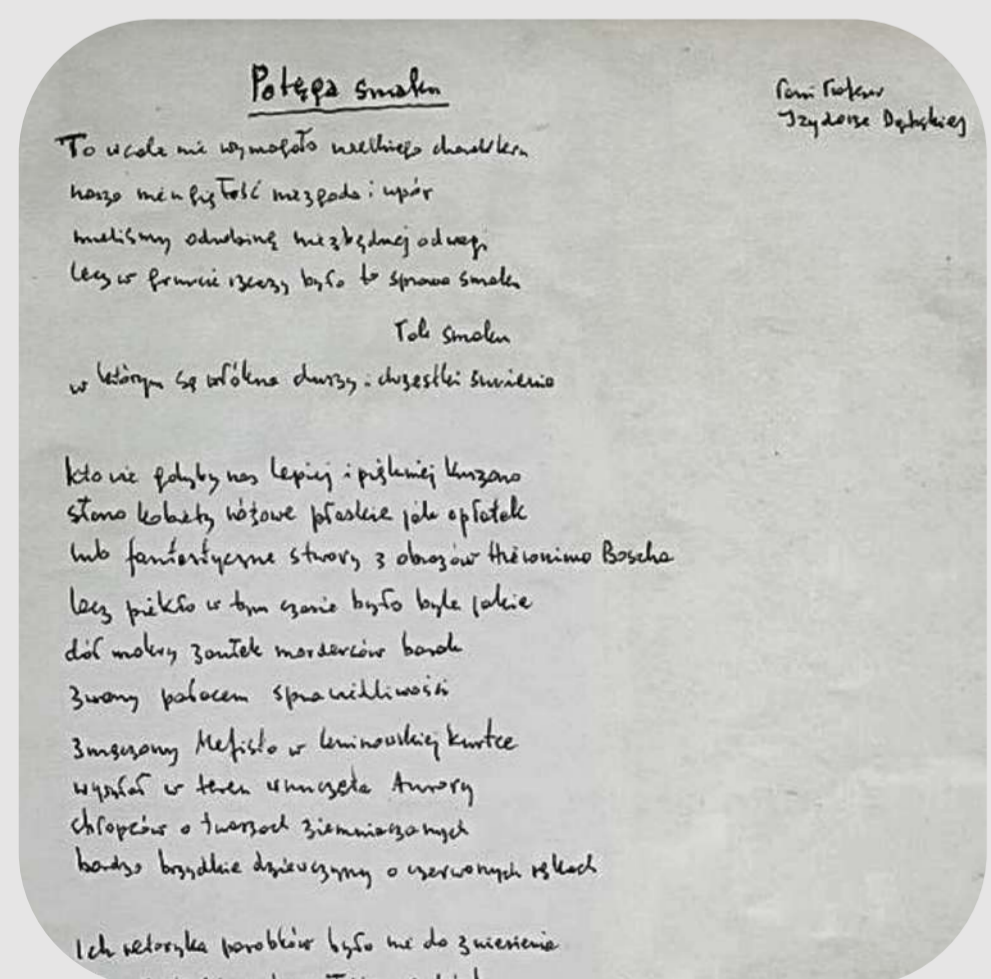 Potęga smaku
Pani Profesor
Izydorze Dąmbskiej
To wcale nie wymagało wielkiego charakteru
nasza nieugiętość niezgoda i upór
mieliśmy odrobinę niezbędnej odwagi
lecz w gruncie rzeczy była to sprawa smaku
Tak smaku
w którym są włókna duszy i chrząstki sumienia
kto wie gdyby nas lepiej i piękniej kuszono
słano kobiety różowe płaskie jak opłatek
lub fantastyczne stwory z obrazów Hieronima Boscha
lecz piekło w tym czasie było byle jakie
dół mokry zaułek morderców barak
zwany pałacem sprawiedliwości
zmęczony Mefisto w leninowskiej kurtce
wysyłał w teren wnuczęta Aurory
chłopców o twarzach ziemniaczanych
bardzo brzydkie dziewczyny o czerwonych rękach
Ich retoryka parobków była nie do zniesienia